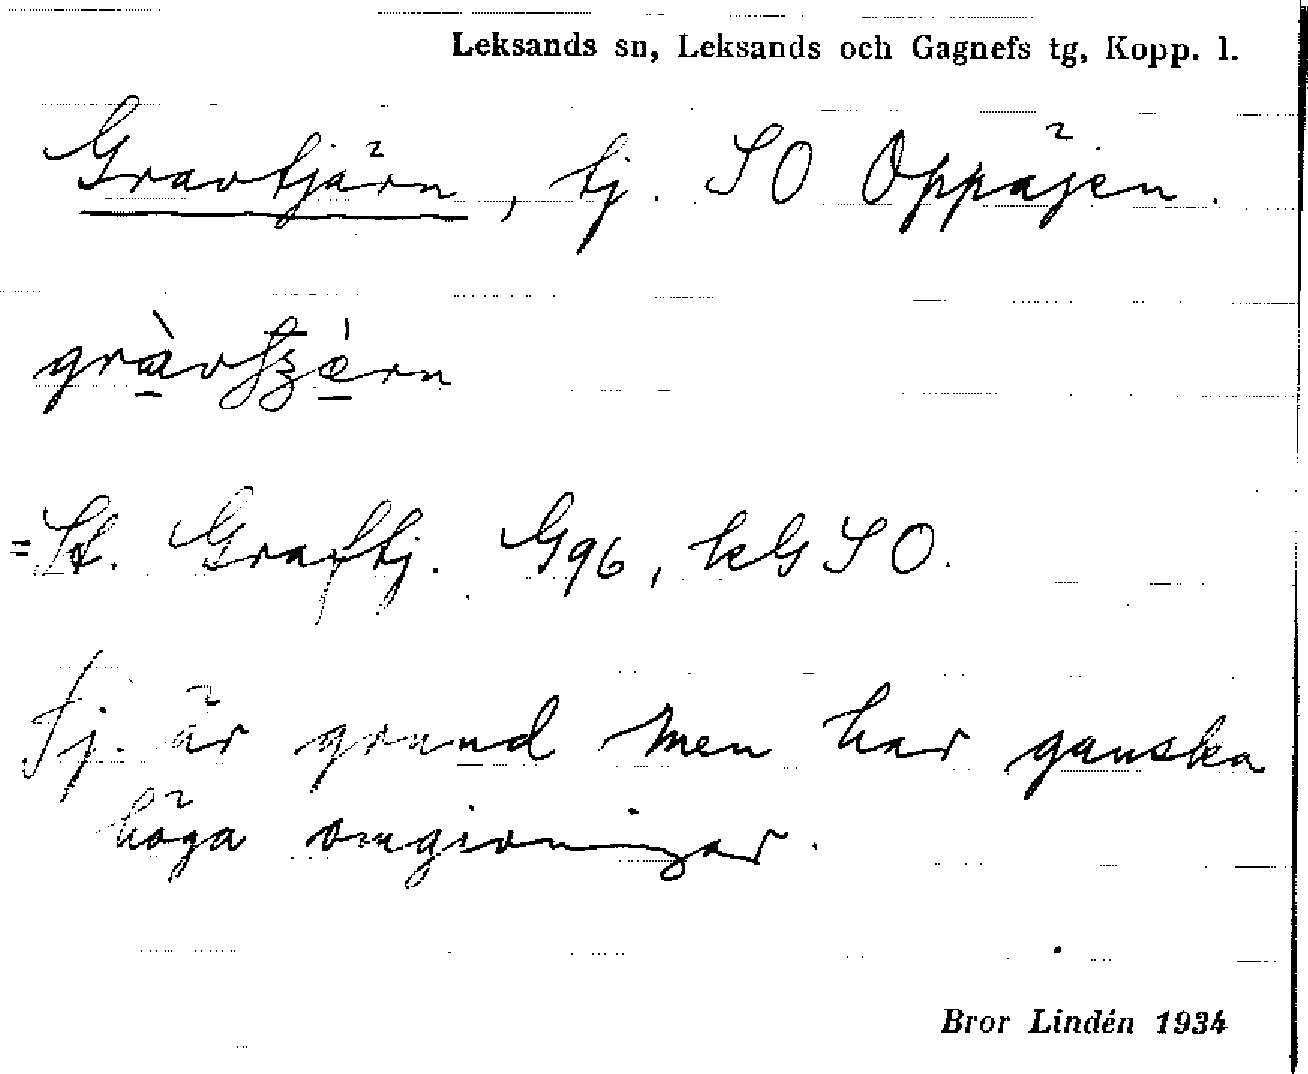 Leksands sn, Leksands och Gagnefs tg, Kopp. l.
Gravtjärn, tj. SO Oppåjen.
= St. Graftj. G96, kG SO.
Tj. är grund men har ganska
höga omgivningar.
Bror Lindén 1934